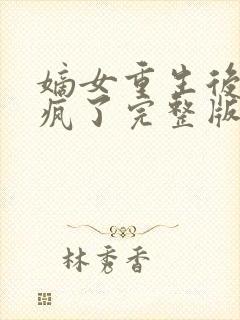 嫡女重生後
瘋了完整版
林秀香